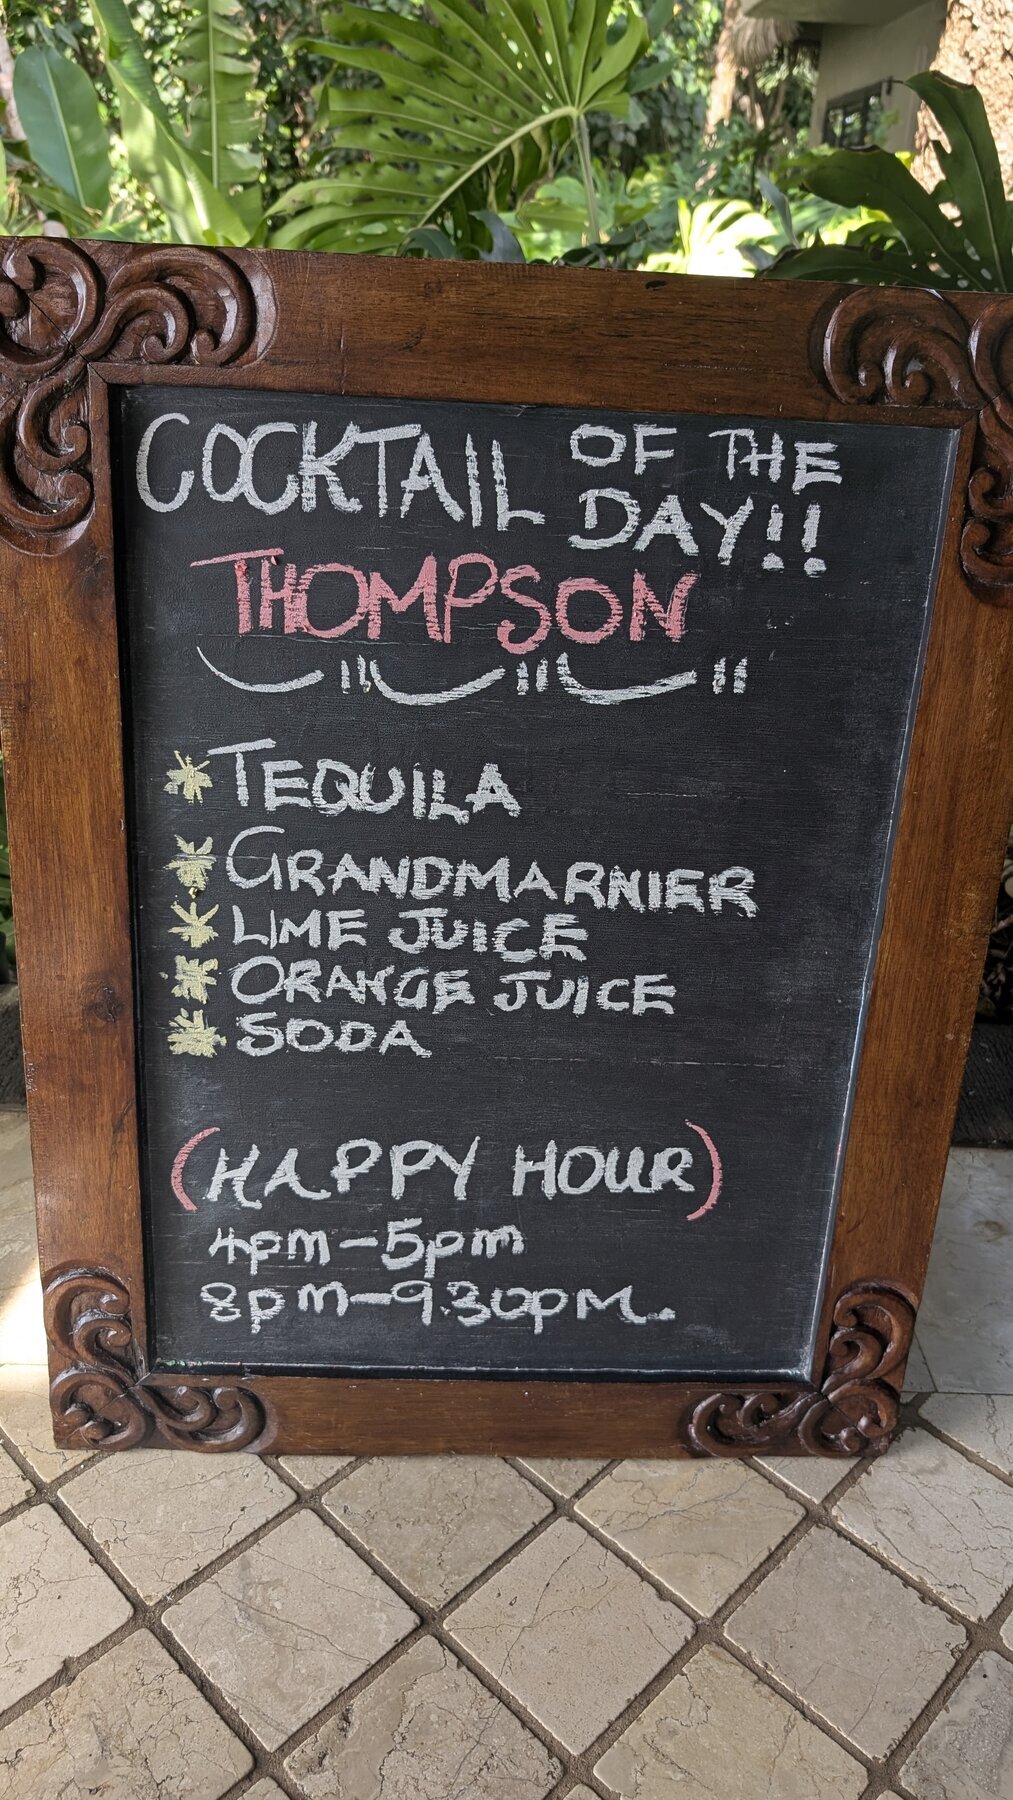 COCKTAIL OF THE DAY!!
THOMPSON
TEQUILA
GRANDMARNIER
LIME JUICE
ORANGE JUICE
SODA
(HAPPY HOUR)
4pm-5pm
8pm-9.30pm.